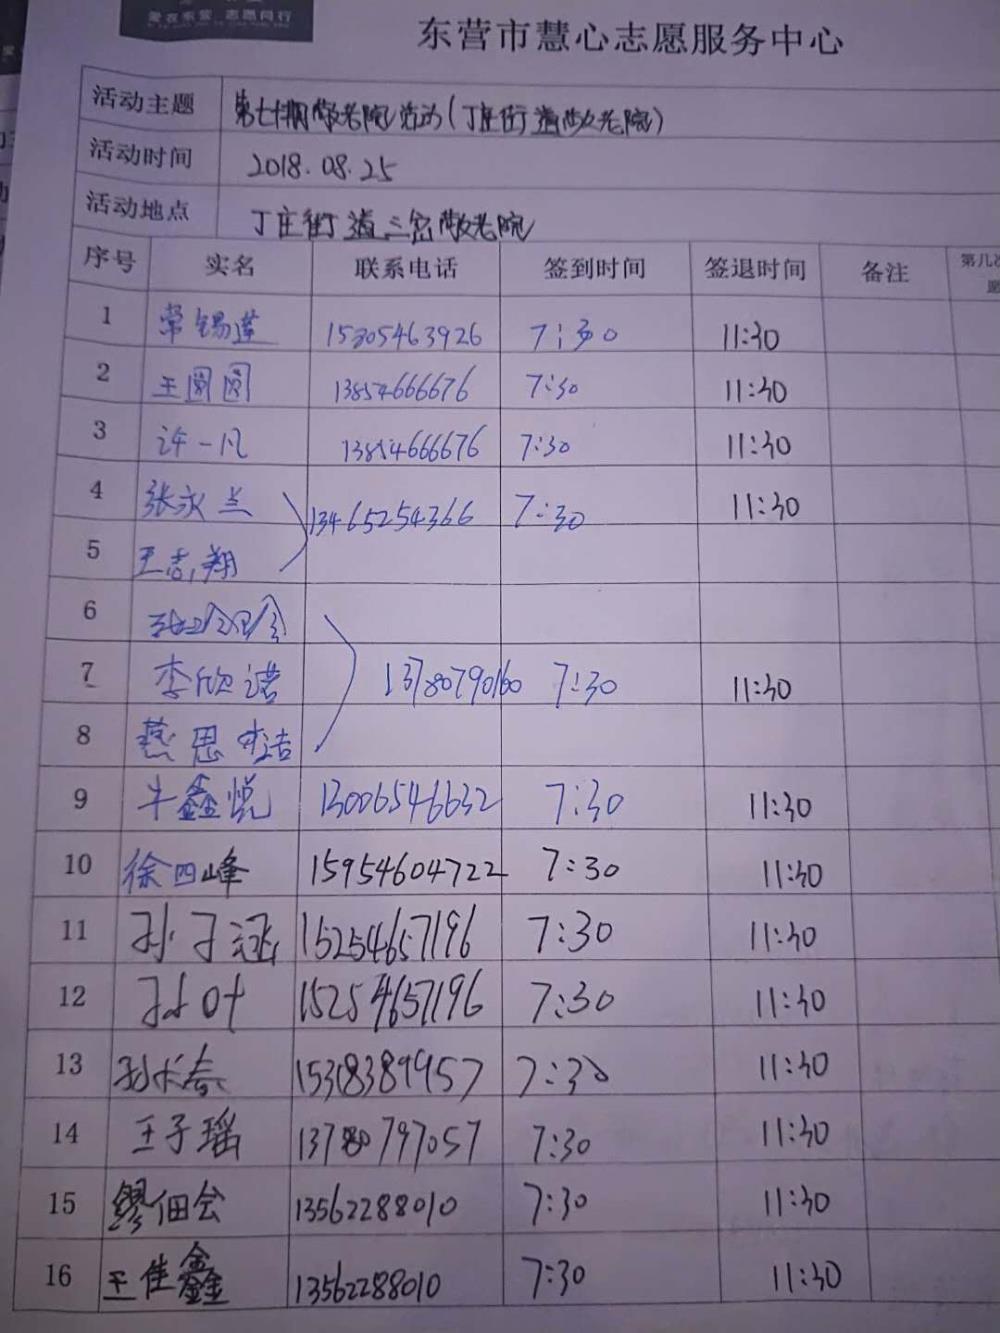 爱在东营 志愿同行
东营市慧心志愿服务中心
活动主题 第七十期敬老院活动(丁庄街道敬老院)
活动时间 2018.08.25
活动地点 丁庄街道三岔敬老院
序号 实名 联系电话 签到时间 签退时间 备注 第几次
1 常锡莲 15305463926 7:30 11:30
2 王圆圆 13854666676 7:30 11:30
3 许一凡 13854666676 7:30 11:30
4 张永兰 13465254366 7:30 11:30
5 王志翔
6
7 李欣诺 13780790160 7:30 11:30
8 燕思洁
9 牛鑫悦 13006546632 7:30 11:30
10 徐四峰 15954604722 7:30 11:30
11 孙子涵 15254657196 7:30 11:30
12 孙叶 15254657196 7:30 11:30
13 孙长春 15318389957 7:30 11:30
14 王子瑶 13780797057 7:30 11:30
15 缪佃会 13562288010 7:30 11:30
16 王佳鑫 13562288010 7:30 11:30